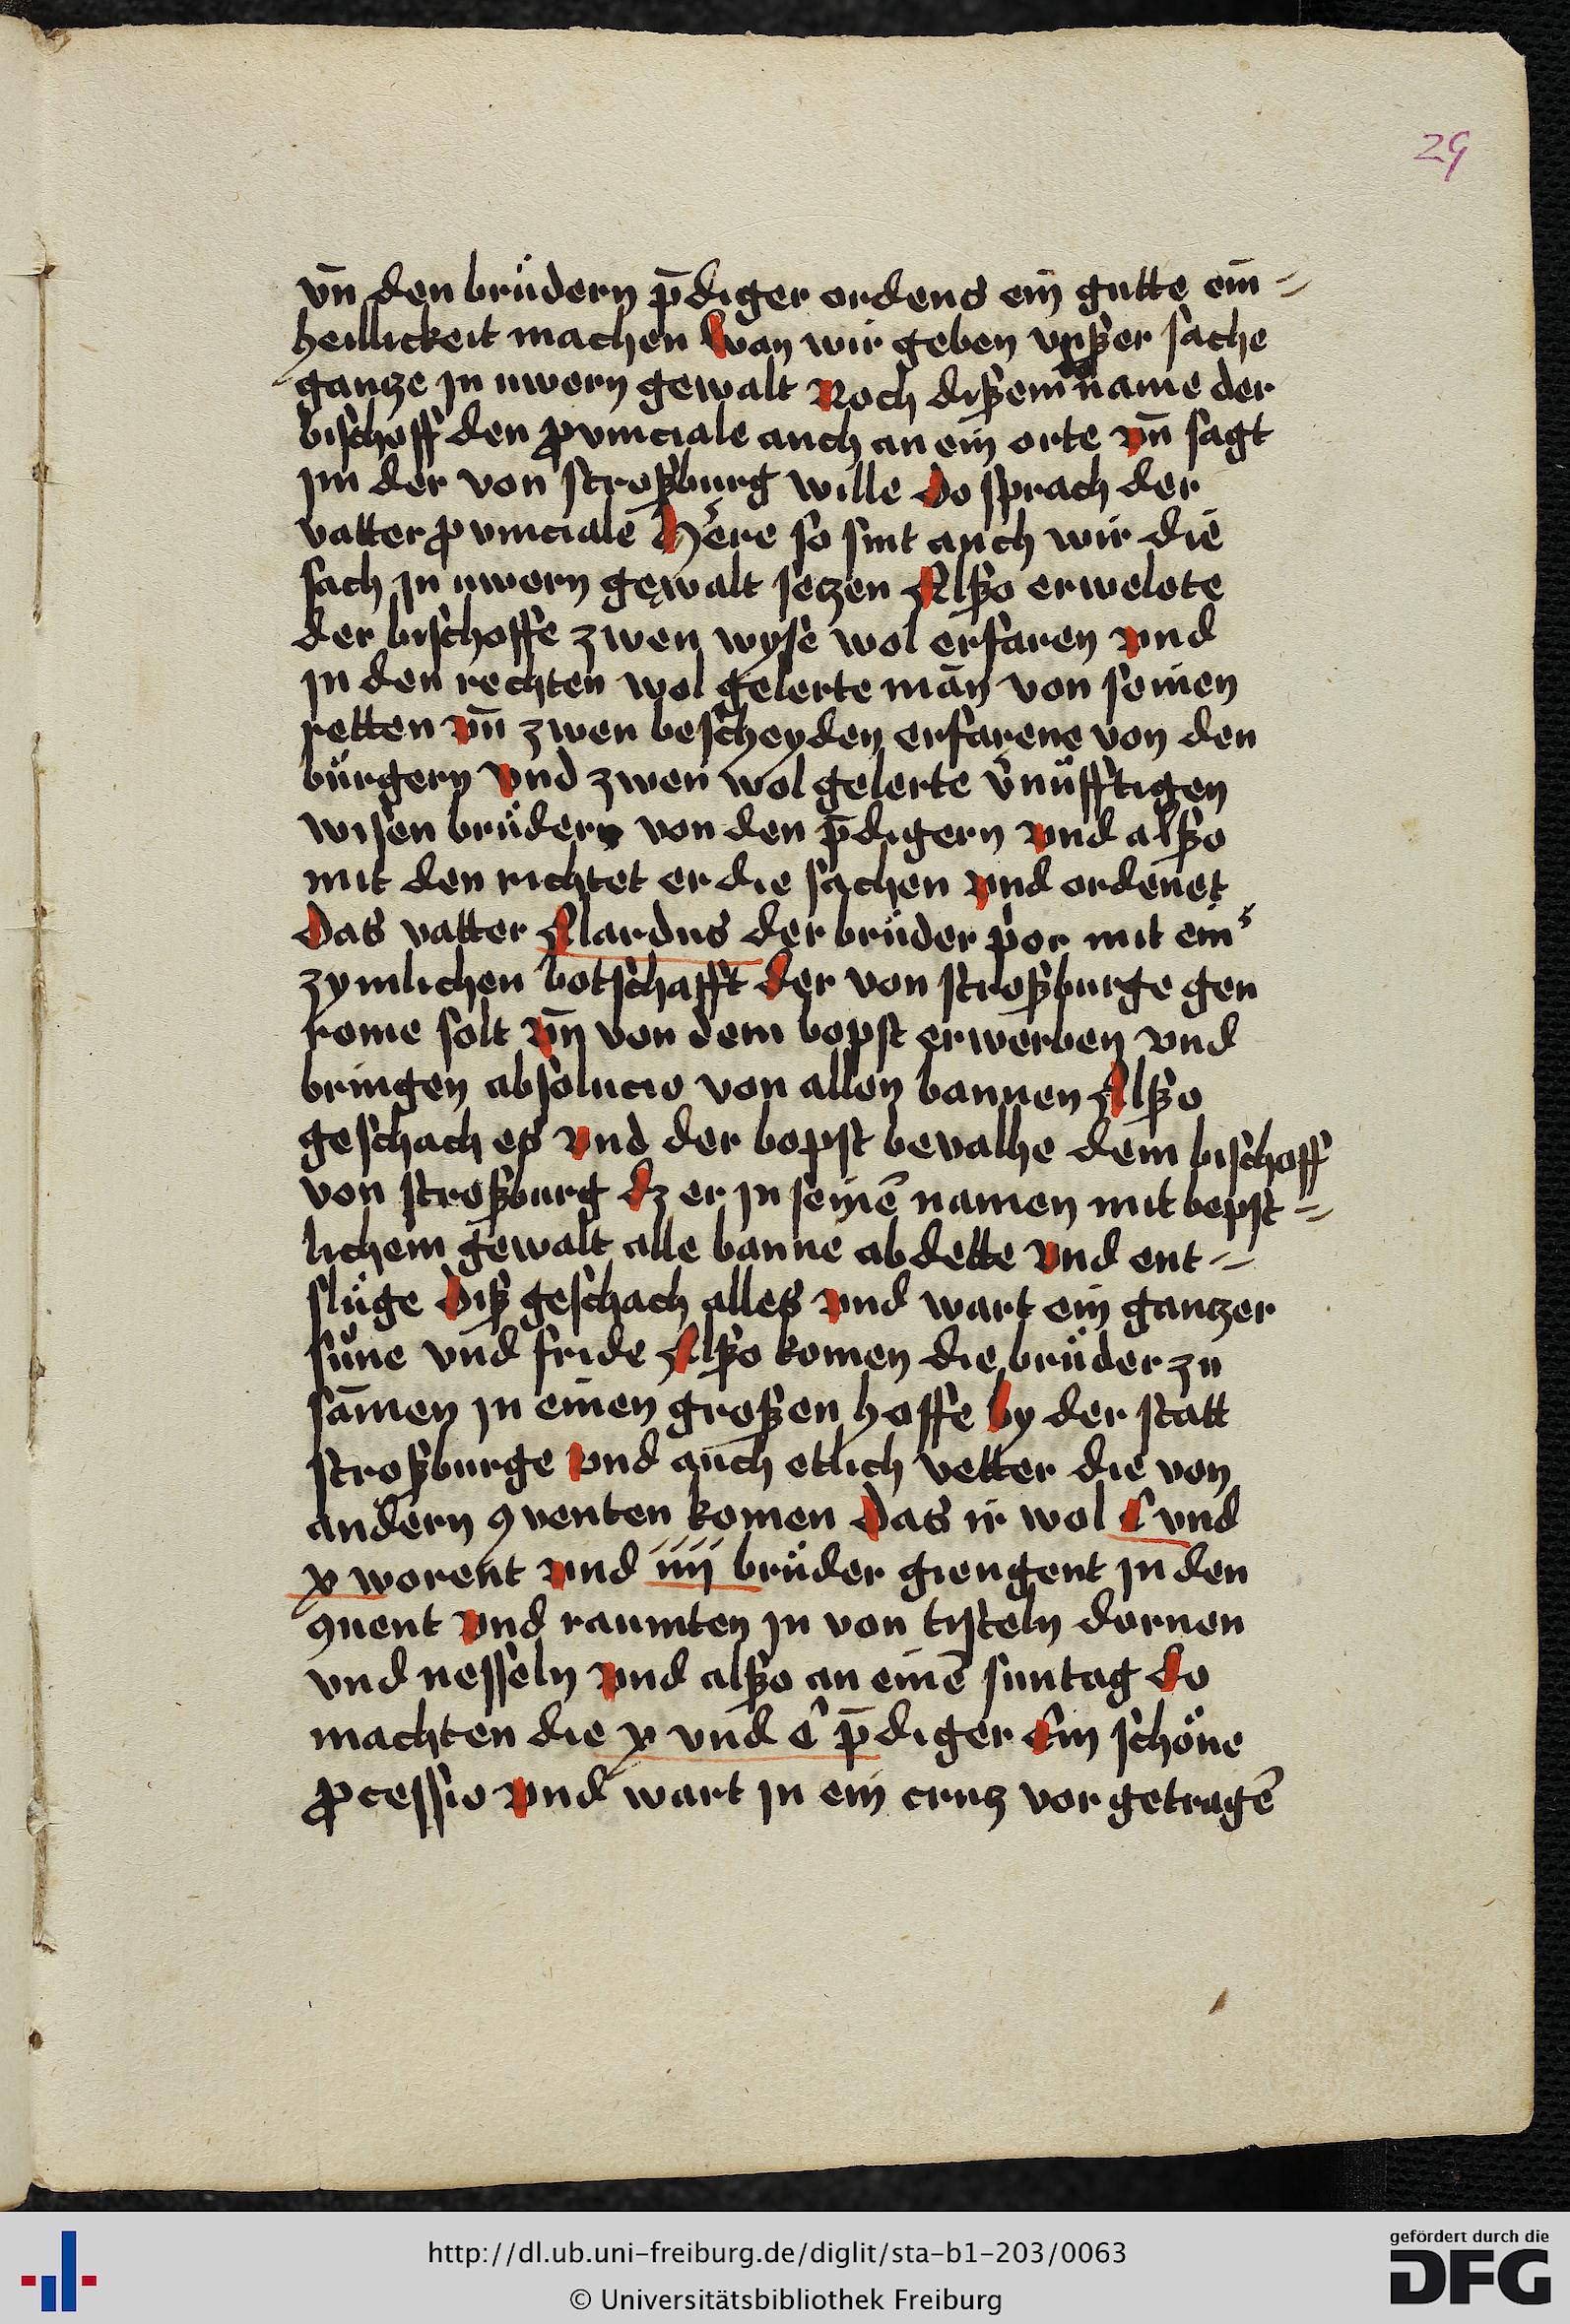 29
vn̄ den brüdern p̄diger ordens ein gutte ein⸗
hellickeit machen wan wir geben vnßer sache
gantze jn uwern gewalt Noch dißem name der
bischoff den ꝓvinciale auch an ein orte vn̄ sagt
jm der von stroßburg wille Do sprach der
vatter ꝓvinciale Here so sint auch wir die
sach jn uwern gewalt setzen Alßo erwelete
der bischoffe zwen wyse wol erfaren vnd
jn den rechten wol gelerte mān von seinen
retten vn̄ zwen bescheyden erfarene von den
bürgern vnd zwen wol gelerte v̄nüfftigen
wisen brüdern von den p̄digern vnd alßo
mit den richtet er die sachen vnd ordenet
Das vatter Alardus der brüder p̍or mit ein͛
zymlichen botschafft der von stroßburge gen
rome solt vn̄ von dem bopst erwerben vnd
bringen absolucio von allen bannen Alßo
geschach es vnd der bopst bevalhe dem bischoff
von stroßburg dz er jn seinē namen mit bepst⸗
lichem gewalt alle banne abdette vnd ent⸗
slüge Diß geschach alles vnd wart ein gantzer
sůne vnd fride Alßo komen die brüder zu
sāmen jn einen großen hoffe by der statt
stroßburge vnd auch etlich vetter die von
andern ꝯventen komen Das ir wol C vnd
x worent vnd iiij brüder giengent jn den
ꝯuent vnd raumten jn von tisteln dornen
vnd nesseln vnd alßo an einē suntag do
machten die x vnd C p̄diger ein schöne
ꝓcessio vnd wart jn ein crutz vor getragē
http://dl.ub.uni-freiburg.de/diglit/sta-b1-203/0063
© Universitätsbibliothek Freiburg
gefördert durch die
DFG